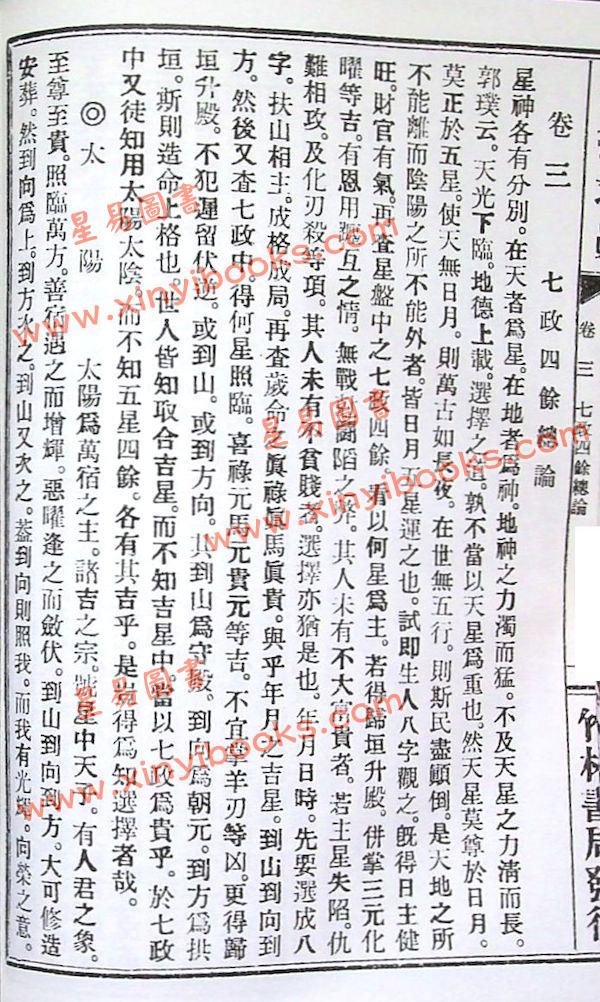 卷三
七政四餘總論
星神各有分別。在天者爲星。在地者爲神。地神之力濁而猛。不及天星之力清而長。
郭璞云。天光下臨。地德上載。選擇之道。孰不當以天星爲重也。然天星莫尊於日月。
莫正於五星。使天無日月。則萬古如長夜。在世無五行。則斯民盡顚倒。是天地之所
不能離而陰陽之所不能外者。皆日月五星運之也。試即生人八字觀之。旣得日主健
旺。財官有氣。再查星盤中之七政四餘。看以何星爲主。若得歸垣升殿。併掌三元化
曜等吉。有恩用 互之情。無戰 鬪陷之 。其人未有不大富貴者。若主星失陷。仇
難相攻。及化刃殺等項。其人未有不貧賤者。選擇亦猶是也。年月日時。先要選成八
字。扶山相主。成格成局。再查歲命之眞祿眞馬眞貴。與乎年月之吉星。到山到向到
方。然後又查七政中。得何星照臨。喜祿元馬元貴元等吉。不宜掌羊刃等凶。更得歸
垣升殿。不犯遲留伏逆。或到山。或到方向。其到山爲守 。到向爲朝元。到方爲拱
垣。斯則造命上格也。世人皆知取合吉星。而不知吉星中。當以七政爲貴乎。於七政
中又徒知用太陽太陰。而不知五星四餘。各有其吉乎。是豈得爲知選擇者哉。
◎太陽
太陽爲萬宿之主。諸吉之宗。號星中天子。有人君之象。
至尊至貴。照臨萬方。善宿遇之而增輝。惡曜逢之而斂伏。到山到向到方。大可修造
安葬。然到向爲上。到方次之。到山又次之。蓋到向則照我。而我有光燭。向榮之意。
卷三 七政四餘總論
竹林書局發行
星易圖書
www.xinyibooks.com
星易圖書
www.xinyibooks.com
星易圖書
www.xinyibooks.com
星易圖書
www.xinyibooks.com